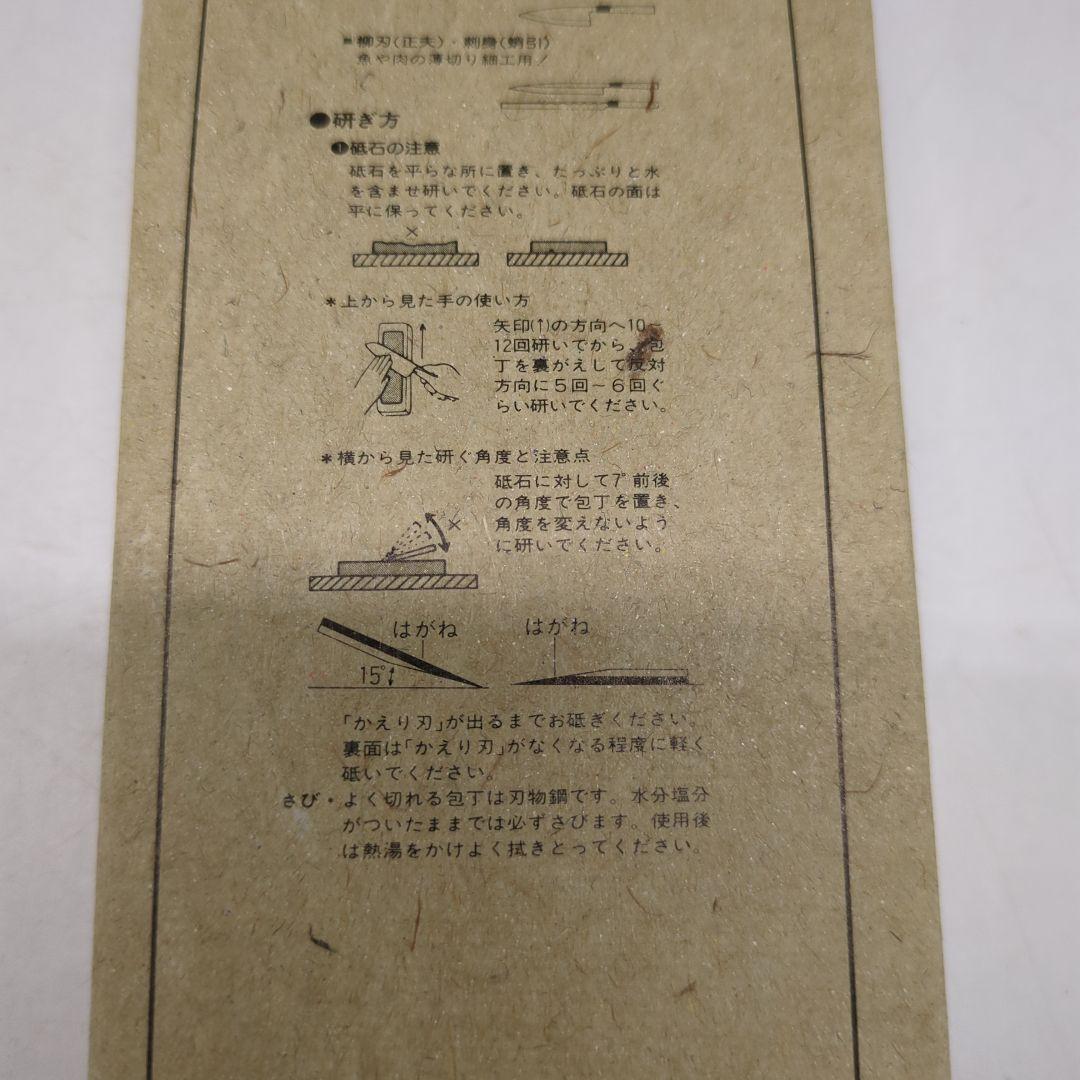 ■柳刃(正夫)・刺身(蛸引)
魚や肉の薄切り細工用！
●研ぎ方
❶砥石の注意
砥石を平らな所に置き、たっぷりと水
を含ませ研いでください。砥石の面は
平に保ってください。
×
*上から見た手の使い方
矢印(↑)の方向へ10〜
12回研いでから、包
丁を裏がえして反対
方向に5回〜6回ぐ
らい研いでください。
*横から見た研ぐ角度と注意点
砥石に対して7°前後
の角度で包丁を置き、
角度を変えないよう
に研いでください。
×
はがね
15°
はがね
「かえり刃」が出るまでお砥ぎください。
裏面は「かえり刃」がなくなる程度に軽く
砥いでください。
さび・よく切れる包丁は刃物鋼です。水分塩分
がついたままでは必ずさびます。使用後
は熱湯をかけよく拭きとってください。